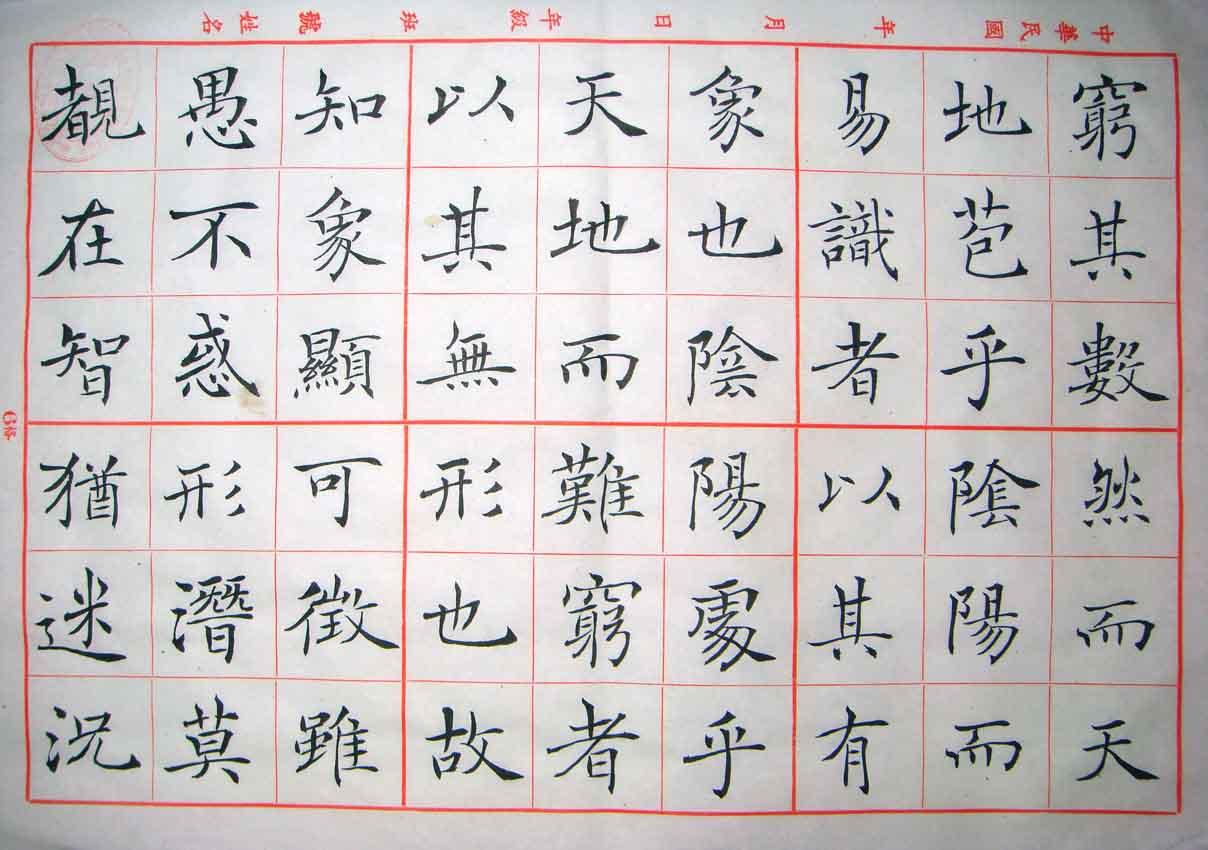 中華民國 年 月 日 年級 班 號 姓名
窮其數然而天
地苞乎陰陽而
易識者以其有
象也陰陽處乎
天地而難窮者
以其無形也故
知象顯可徵雖
愚不惑形潛莫
覩在智猶迷況